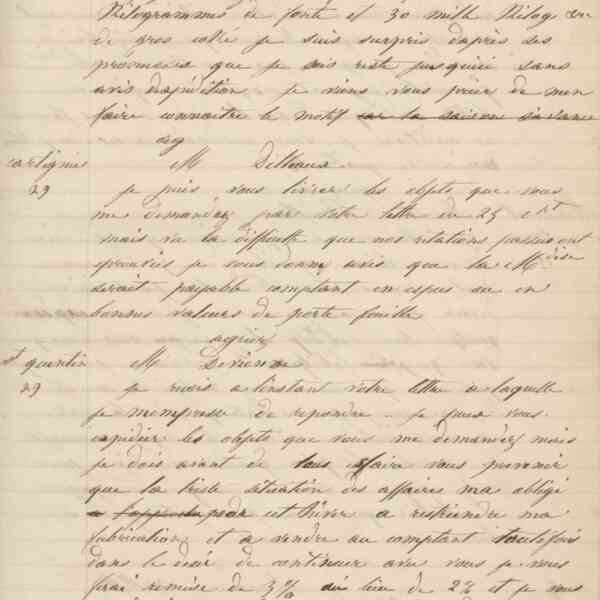 Kilogrammes de fonte et 30 mille Kilog
de gros collé je suis surpris dapres ses
promesses que je sois resté jusquici sans
avis dexpédition. je viens vous prier de men
faire connaitre le motif car la saison
agr
M Delhaux
29
je puis vous livrer les objets que vous
me demandéz par votre lettre du 25 ct
mais vu la difficulté que nos relations passées ont
eprouvées je vous donne avis que la Mdise
serait payable comptant en espces ou en
bonnes valeurs de porte feuille
agréez
st quentin M Devienne
29
je recois a linstant votre lettre a laquelle
je mempresse de repondre .. je puis vous
expédier les objets que vous me demandéz mais
je dois avant de faire vous prevenir
que la triste situation des affaires ma obligé
pour cet hiver a restreindre ma
fabrication et a vendre au comptant toutefois
dans le desir de continuer avec vous je vous
ferai remise de 3% au lieu de 2% et je vous